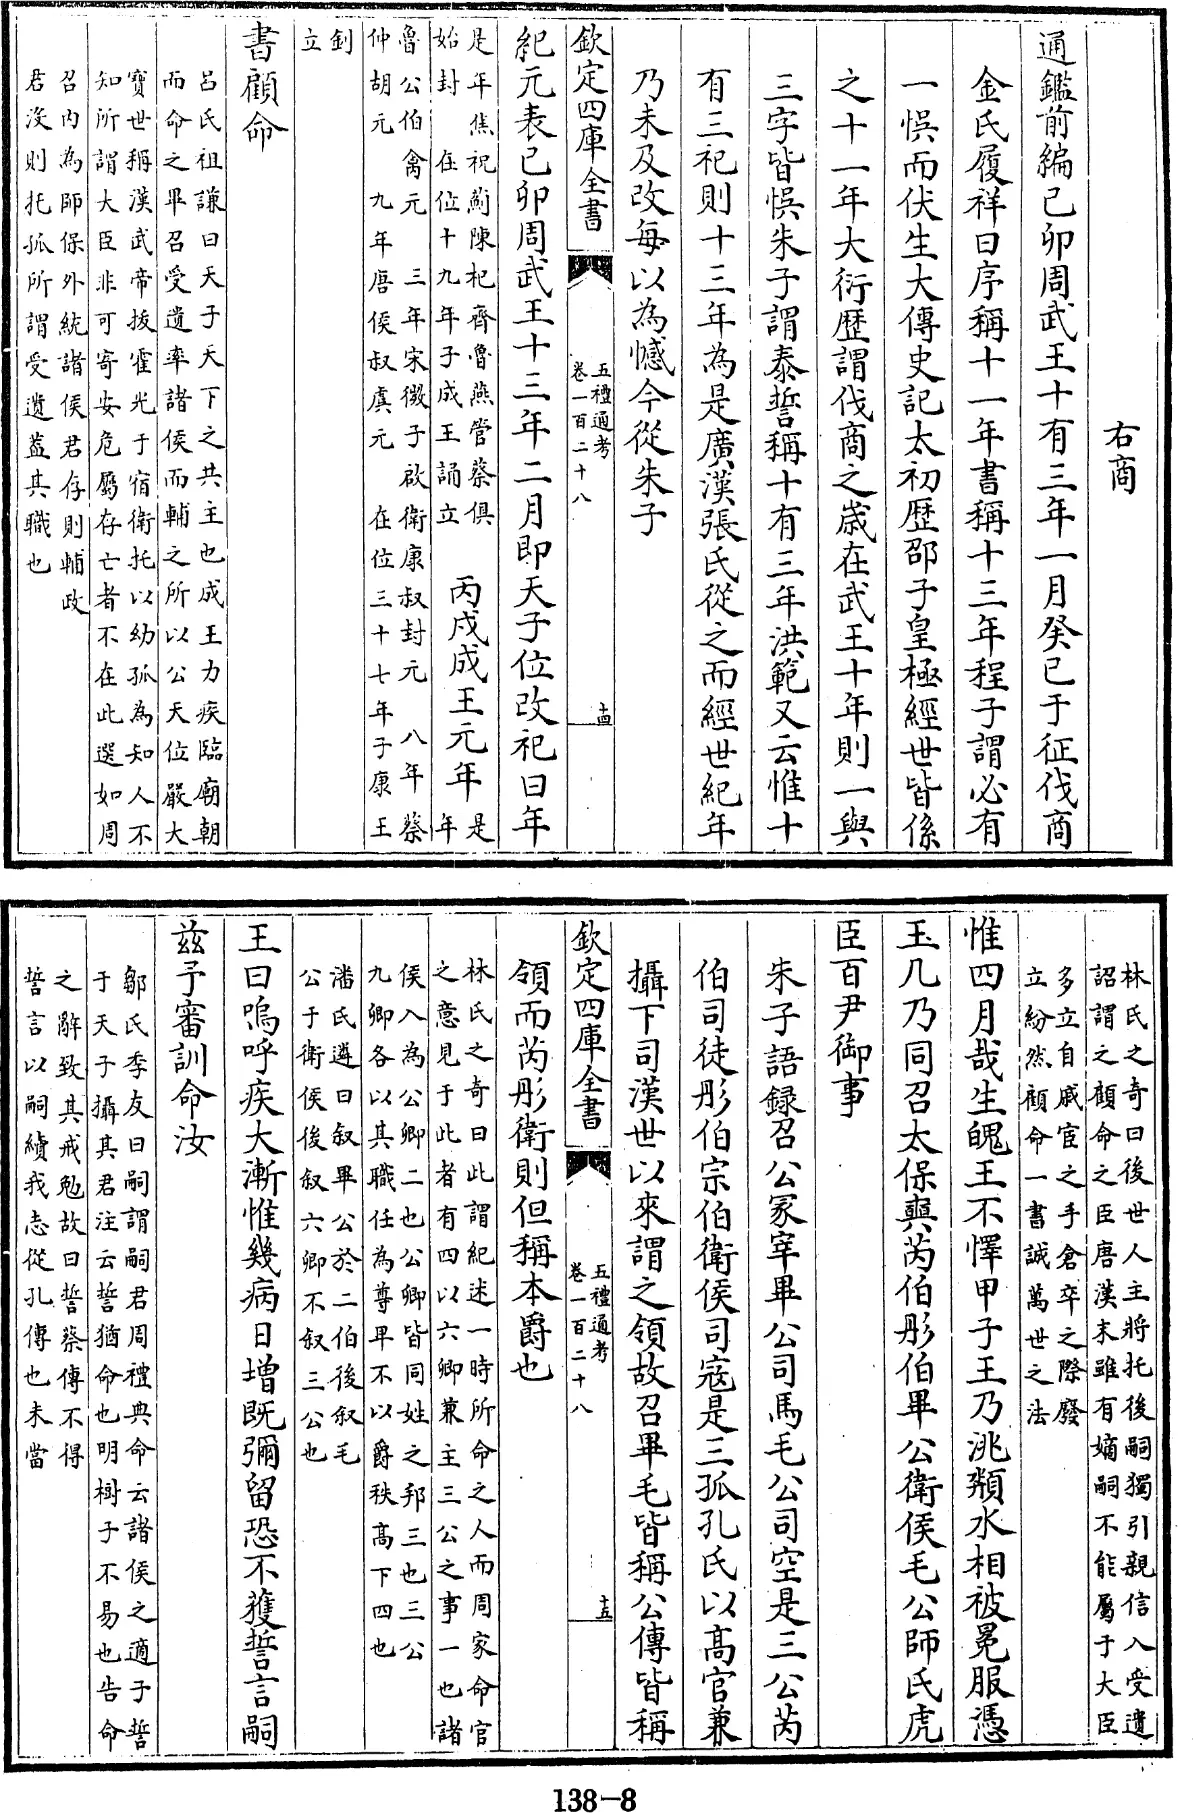 右商
通鑑前編己卯周武王十有三年一月癸巳于征伐商
金氏履祥曰序稱十一年書稱十三年程子謂必有
一悞而伏生大傳史記太初歷邵子皇極經世皆係
之十一年大衍歷謂伐商之歲在武王十年則一與
三字皆悞朱子謂泰誓稱十有三年洪範又云惟十
有三祀則十三年為是廣漢張氏從之而經世紀年
乃未及改每以為憾今從朱子
欽定四庫全書
五禮通考
卷一百二十八
十四
紀元表己卯周武王十三年二月即天子位改祀曰年
是年焦祝薊陳杞齊魯燕管蔡俱
始封 在位十九年子成王誦立
丙戌成王元年
是
年
魯公伯禽元 三年宋微子啟衛康叔封元 八年蔡
仲胡元 九年唐侯叔虞元 在位三十七年子康王
釗
立
書顧命
呂氏祖謙曰天子天下之共主也成王力疾臨廟朝
而命之畢召受遺率諸侯而輔之所以公天位嚴大
寶世稱漢武帝拔霍光于宿衛托以幼孤為知人不
知所謂大臣非可寄安危屬存亡者不在此選如周
召内為師保外統諸侯君存則輔政
君沒則托孤所謂受遺葢其職也
林氏之奇曰後世人主將托後嗣獨引親信入受遺
詔謂之顧命之臣唐漢末雖有嫡嗣不能屬于大臣
多立自戚宦之手倉卒之際廢
立紛然顧命一書誠萬世之法
惟四月哉生魄王不懌甲子王乃洮頮水相被冕服憑
玉几乃同召太保奭芮伯彤伯畢公衛侯毛公師氏虎
臣百尹御事
朱子語錄召公冢宰畢公司馬毛公司空是三公芮
伯司徒彤伯宗伯衛侯司寇是三孤孔氏以高官兼
攝下司漢世以來謂之領故召畢毛皆稱公傳皆稱
欽定四庫全書
五禮通考
卷一百二十八
十五
領而芮彤衛則但稱本爵也
林氏之奇曰此謂紀述一時所命之人而周家命官
之意見于此者有四以六卿兼主三公之事一也諸
侯入為公卿二也公卿皆同姓之邦三也三公
九卿各以其職任為尊卑不以爵秩高下四也
潘氏遴曰叙畢公於二伯後叙毛
公于衛侯後叙六卿不叙三公也
王曰嗚呼疾大漸惟幾病日增既彌留恐不獲誓言嗣
兹予審訓命汝
鄒氏季友曰嗣謂嗣君周禮典命云諸侯之適子誓
于天子攝其君注云誓猶命也明樹子不易也告命
之辭致其戒勉故曰誓蔡傳不得
誓言以嗣續我志從孔傳也未當
138-8